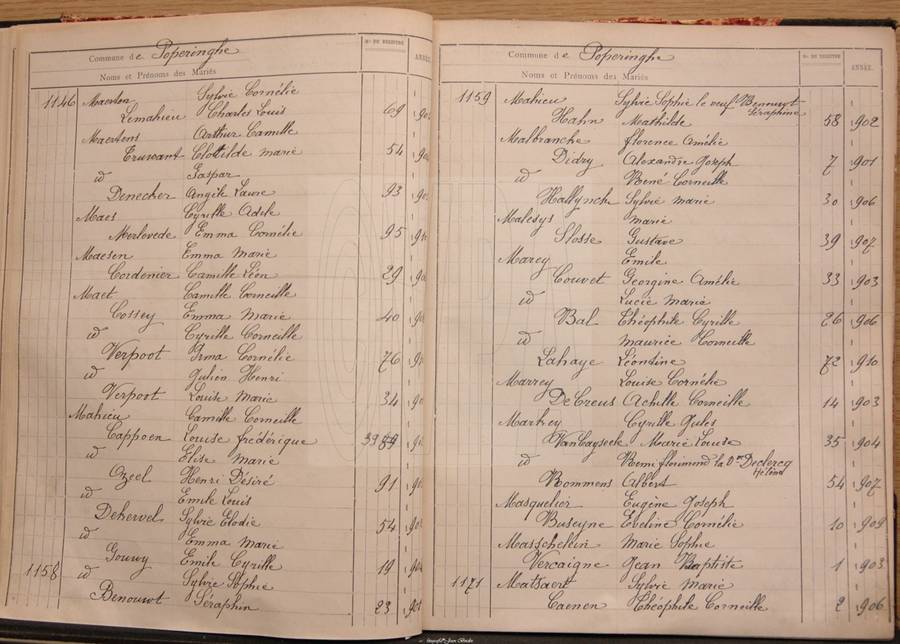 Commune de Poperinghe
N° DE REGISTRE
ANNÉE
Noms et Prénoms des Mariés
1146 Maerten Sylvie Cornélie
Lemahieu Charles Louis 69
Maertens Arthur Camille
Truwant Clotilde Marie 54
id Gaspar
Denecker Angèle Laure 93
Maes Cyrille Adile
Merlevede Emma Cornélie 95
Maesen Emma Marie
Cordenier Camille Léon 29
Maet Camille Corneille
Cossey Emma Marie 40
id Cyrille Corneille
Verpoot Irma Cornélie 76
id Julien Henri
Verpoot Louise Marie 34
Mahieu Camille Corneille
Cappoen Louise frédérique 39
id Elise Marie
Ozeel Henri Désiré 91
id Emile Louis
Dehervel Sylvie Elodie 54
id Emma Marie
Gouwy Emile Cyrille 19
1158 id Sylvie Sophie
Benouwt Séraphin 23
Commune de Poperinghe
N° DE REGISTRE
ANNÉE
Noms et Prénoms des Mariés
1159 Mahieu Sylvie Sophie le veuf Benouwt Séraphine
Hahn Mathilde 58 902
Malbranche florence Amélie
Didry Alexandre Joseph 7 901
id René Corneille
Hallynck Sylvie Marie 30 906
Malesys Marie
Slosse Gustave 39 907
Marey Emile
Couvet Georgine Amélie 33 903
id Lucie Marie
Bal Théophile Cyrille 26 906
id Maurice Corneille
Lahaye Léontine 72 910
Marrey Louise Cornélie
DeCreus Achille Corneille 14 903
Martrey Cyrille Jules
Van Cayseele Marie Louise 35 904
id Remi florimond la Declercq
Rommens Albert 54 907
Masquelier Eugène Joseph
Buseyne Eveline Cornélie 10 909
Masschelein Marie Sophie
Vercaigne Jean Baptiste 1 903
1171 Matsaert Sylvie Marie
Caenen Théophile Corneille 2 906